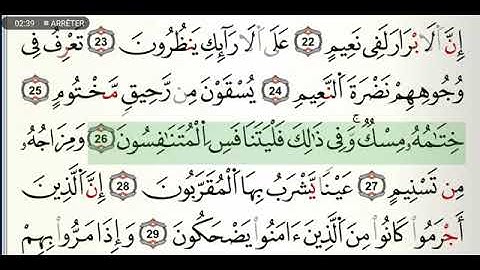 02:39 ■ ARRÊTER
إِنَّ ٱلَابْرَارَ لَفِے نَعِيمٍ 22 عَلَى ٱلَارَآئِكِ يَنظُرُونَ 23 تَعْرِفُ فِے
وُجُوهِهِمْ نَضْرَةَ ٱلنَّعِيمِ 24 يُسْقَوْنَ مِن رَّحِيقٍ مَّخْتُومٍ 25
خِتَٰمُهُۥ مِسْكٌۖ وَفِے ذَٰلِكَ فَلْيَتَنَافَسِ ٱِلْمُتَنَٰفِسُونَ 26 وَمِزَاجُهُۥ
مِن تَسْنِيمٍ 27 عَيْناً يَّشْرَبُ بِهَا ٱَلْمُقَرَّبُونَ 28 إِنَّ ٱلَّذِينَ
أَجْرَمُواْ كَانُواْ مِنَ ٱلَّذِينَ ءَامَنُواْ يَضْحَكُونَ 29 وَإِذَا مَرُّواْ بِهِمْ